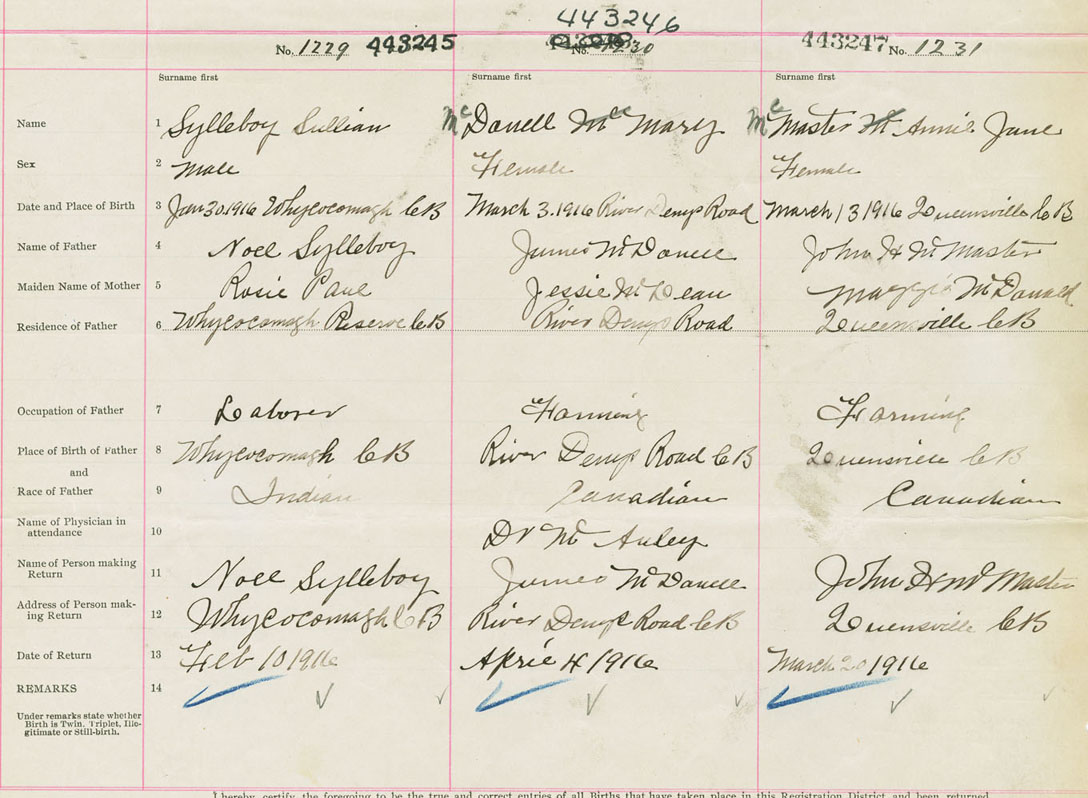 443246
No. 1229 443245 No. 1230 443247 No. 1231
Surname first Surname first Surname first
Name 1 Sylleboy Sullian Mc Donell Mc Mary Mc Master Mc Annie Jane
Sex 2 Male Female Female
Date and Place of Birth 3 Jan 30.1916 Whycocomagh CB March 3.1916 River Denys Road March 13 1916 Queensville CB
Name of Father 4 Noel Sylleboy James McDonell John H McMaster
Maiden Name of Mother 5 Rosie Paul Jessie McLean Maggie McDonald
Residence of Father 6 Whycocamagh Reserve CB River Denys Road Queensville CB
Occupation of Father 7 Laborer Farming Farming
Place of Birth of Father 8 Whycocomagh CB River Denys Road CB Queensville CB
and
Race of Father 9 Indian Canadian Canadian
Name of Physician in
attendance 10 Dr Mc Auley
Name of Person making
Return 11 Noel Sylleboy James McDonell John H McMaster
Address of Person mak-
ing Return 12 Whycocomagh CB River Denys Road CB Queensville CB
Date of Return 13 Feb 10 1916 April 4 1916 March 20 1916
REMARKS 14
Under remarks state whether
Birth is Twin. Triplet, Ille-
gitimate or Still-birth.
I hereby, certify, the foregoing to be the true and correct entries of all Births that have taken place in this Registration District and been returned